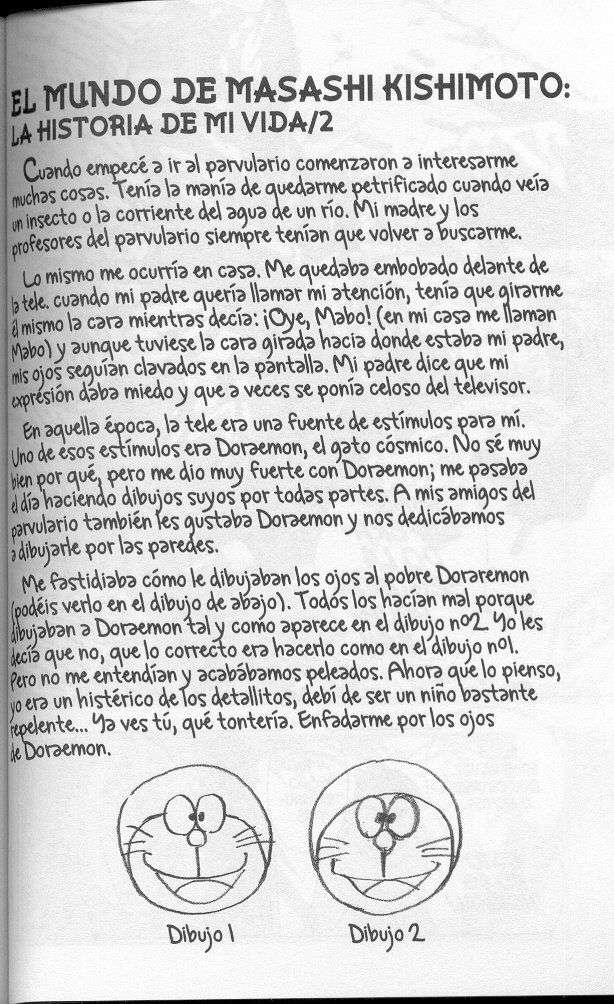 EL MUNDO DE MASASHI KISHIMOTO:
LA HISTORIA DE MI VIDA/2
Cuando empecé a ir al parvulario comenzaron a interesarme
muchas cosas. Tenía la manía de quedarme petrificado cuando veía
un insecto o la corriente del agua de un río. Mi madre y los
profesores del parvulario siempre tenían que volver a buscarme.
Lo mismo me ocurría en casa. Me quedaba embobado delante de
la tele. cuando mi padre quería llamar mi atención, tenía que girarme
él mismo la cara mientras decía: ¡Oye, Mabo! (en mi casa me llaman
Mabo) y aunque tuviese la cara girada hacia donde estaba mi padre,
mis ojos seguían clavados en la pantalla. Mi padre dice que mi
expresión daba miedo y que a veces se ponía celoso del televisor.
En aquella época, la tele era una fuente de estímulos para mí.
Uno de esos estímulos era Doraemon, el gato cósmico. No sé muy
bien por qué, pero me dio muy fuerte con Doraemon; me pasaba
el día haciendo dibujos suyos por todas partes. A mis amigos del
parvulario también les gustaba Doraemon y nos dedicábamos
a dibujarle por las paredes.
Me fastidiaba cómo le dibujaban los ojos al pobre Doraremon
(podéis verlo en el dibujo de abajo). Todos los hacían mal porque
dibujaban a Doraemon tal y como aparece en el dibujo nº2. Yo les
decía que no, que lo correcto era hacerlo como en el dibujo nº1.
Pero no me entendían y acabábamos peleados. Ahora que lo pienso,
yo era un histérico de los detallitos, debí de ser un niño bastante
repelente... Ya ves tú, qué tontería. Enfadarme por los ojos
de Doraemon.
Dibujo 1
Dibujo 2